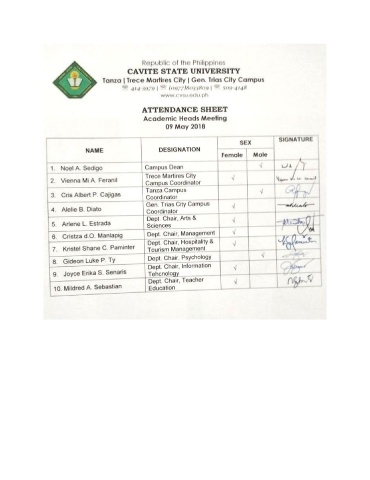 Republic of the Philippines
CAVITE STATE UNIVERSITY
Tanza | Trece Martires City | Gen. Trias City Campus
www.cvsu.edu.ph
ATTENDANCE SHEET
Academic Heads Meeting
09 May 2018
NAME DESIGNATION SEX SIGNATURE
Female Male
1. Noel A. Sedigo Campus Dean √
2. Vienna Mi A. Feranil Trece Martires City
Campus Coordinator √
3. Cris Albert P. Cajigas Tanza Campus
Coordinator √
4. Alelie B. Diato Gen. Trias City Campus
Coordinator √
5. Arlene L. Estrada Dept. Chair, Arts &
Sciences √
6. Cristza d.O. Maniapig Dept. Chair, Management √
7. Kristel Shane C. Paminter Dept. Chair, Hospitality &
Tourism Management √
8. Gideon Luke P. Ty Dept. Chair, Psychology √
9. Joyce Erika S. Senaris Dept. Chair, Information
Tehcnology √
10. Mildred A. Sebastian Dept. Chair, Teacher
Education √